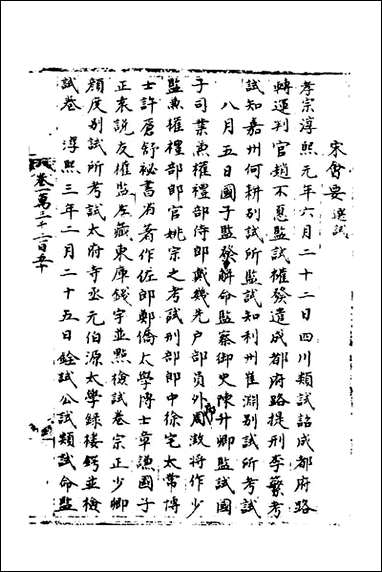 宋會要 選試
孝宗淳熙元年六月二十二日四川類試詔成都府路
轉運判官趙不惪監試權發遣成都府路提刑李蘩考
試知嘉州何耕別試所監試知利州崔淵別試所考試
八月五日國子監發解命監察御史陳升卿監試國
子司業兼權禮部侍郎戴幾先戶部員外郎周
將作少
監兼權禮部郎官姚宗之考試刑部郎中徐宅太常博
士許蒼舒秘書省著作佐郎鄭僑太學博士章謙國子
正來說友權監左藏東庫錢宇並點檢試卷宗正少卿
顏度別試所考試太府寺丞元伯源太學錄樓鍔並檢
試卷 淳熙三年二月二十五日銓試公試類試命監
卷一萬三千二百五十